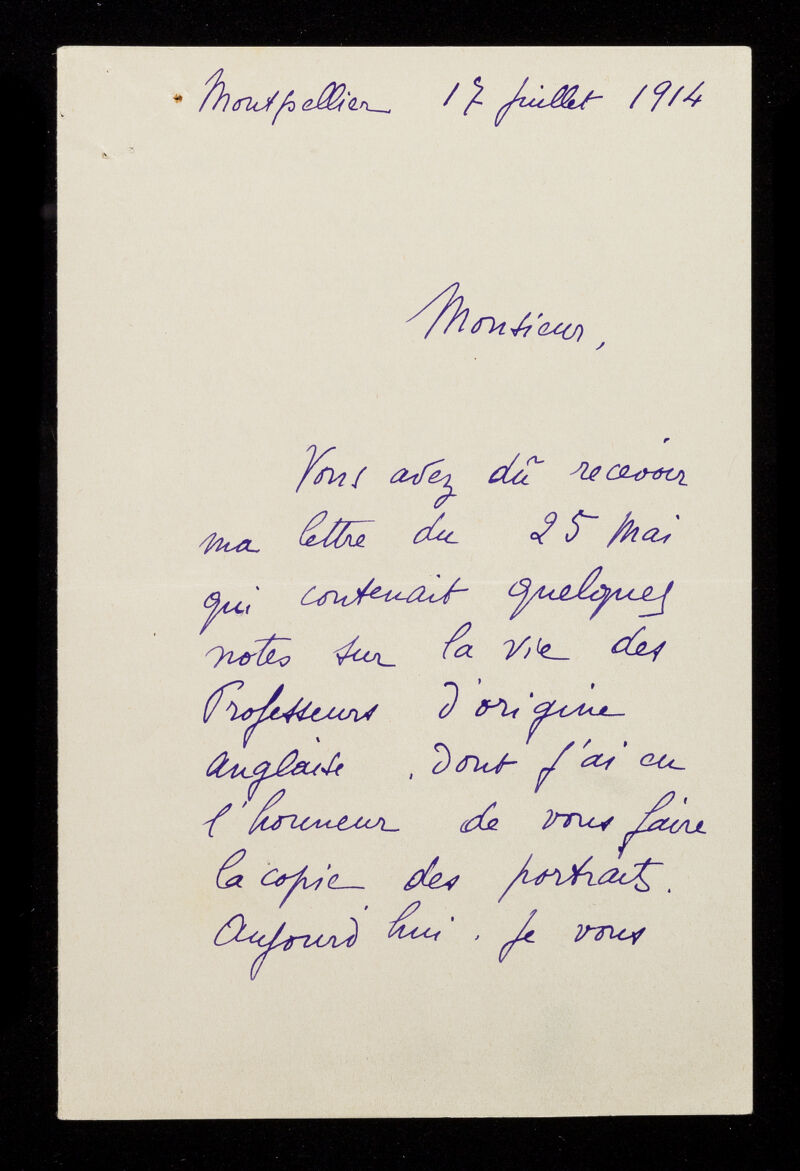 Montpellier 17 juillet 1914
Monsieur,
Vous avez dû recevoir
ma lettre du 25 Mai
qui contenait quelques
notes sur la vie des
Professeurs d'origine
anglaise, dont j'ai eu
l'honneur de vous faire
la copie des portraits.
Aujourd'hui. je vous